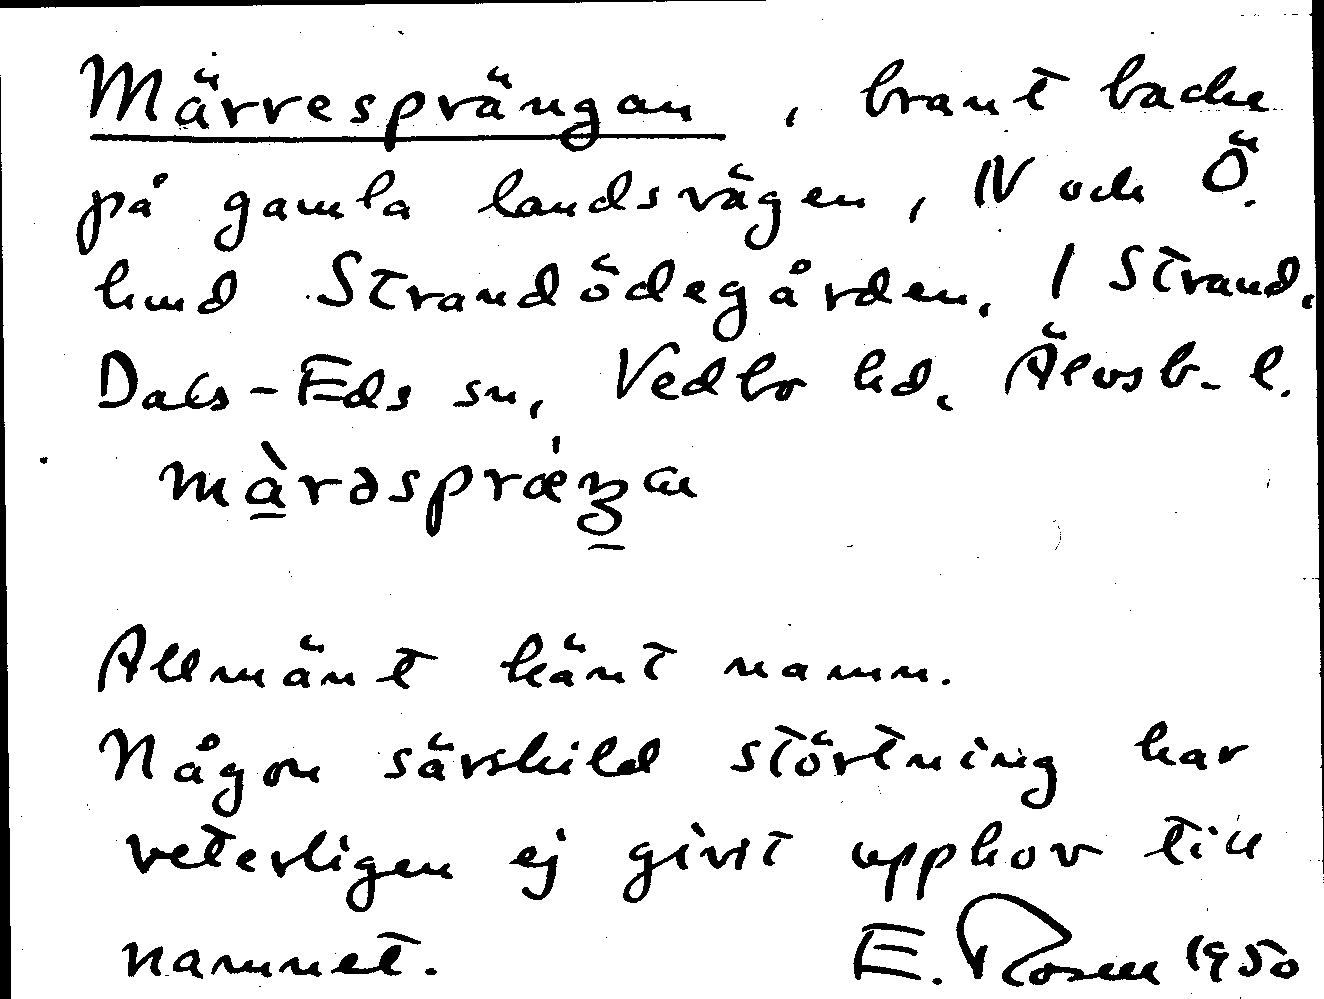 Märresprängan, brant backe
på gamla landsvägen, N och Ö.
hmd Strandödegården. 1 Strand.
Dals-Eds sn, Vedbo hd. Älvsb. l.
Allmänt känt namn.
Någon särskild störtning har
veterligen ej givit upphov till
namnet. E. Rosen 1950